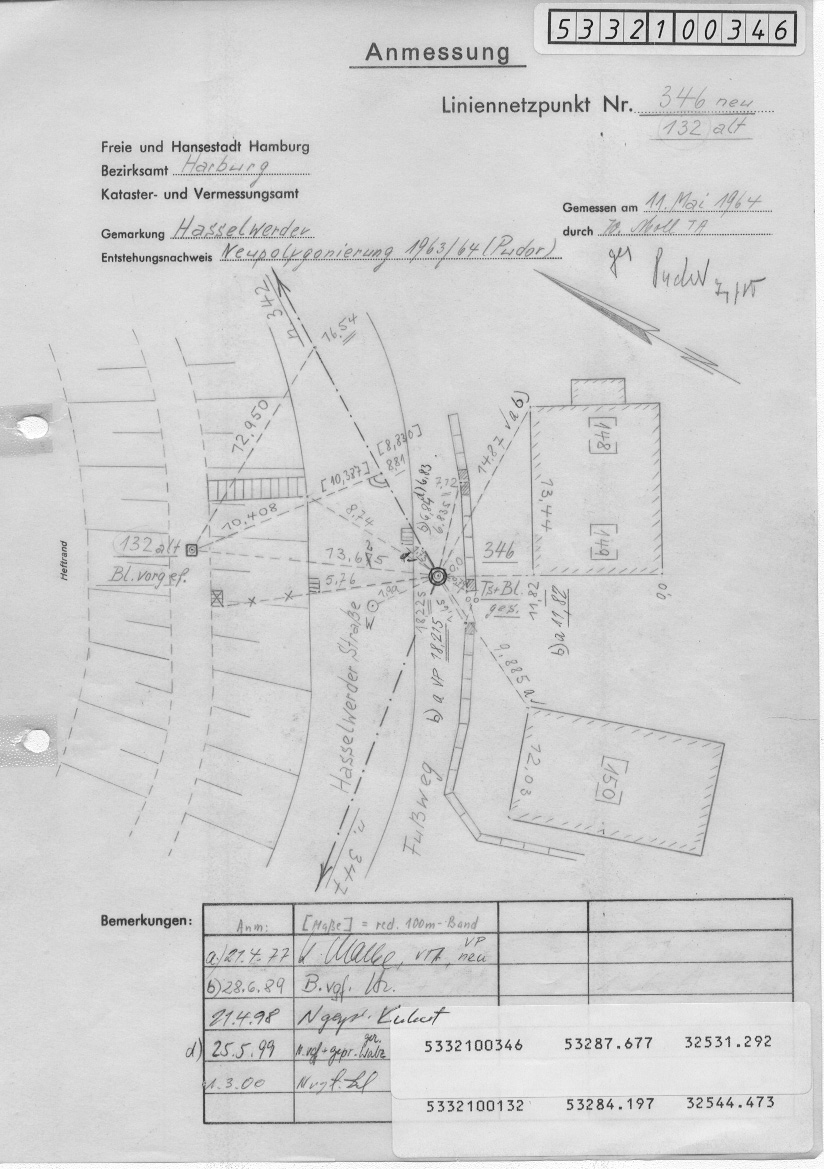 5332100346
Anmessung
Liniennetzpunkt Nr. 346 neu
(132) alt
Freie und Hansestadt Hamburg
Bezirksamt Harburg
Kataster- und Vermessungsamt
Gemessen am 11. Mai 1964
durch TA
Gemarkung Hasselwerder
Entstehungsnachweis Neupolygonierung 1963/64 (Pudor)
ges
n. 342
16.54
12.950
[8,830]
8,81
[10,387]
10.408
14.87 v a b)
7,12
148
13,44
149
8,74
(132 alt)
Bl. vorgef.
13.6
5,76
1,90
346
TS+Bl.
ges.
28,11
28,11 a b)
0,0
18,225
b) a VP 18,215
9,885 a
12,03
150
Hasselwerder Straße
Fußweg
n. 347
Heftrand
Bemerkungen:
Anm: [Maße] = red. 100m-Band
a) 21.4.77 VP neu
b) 28.6.89 B. vgf.
21.4.98 N gepr.
d) 25.5.99 N. vgf + gepr.
1.3.00
5332100346 53287.677 32531.292
5332100132 53284.197 32544.473